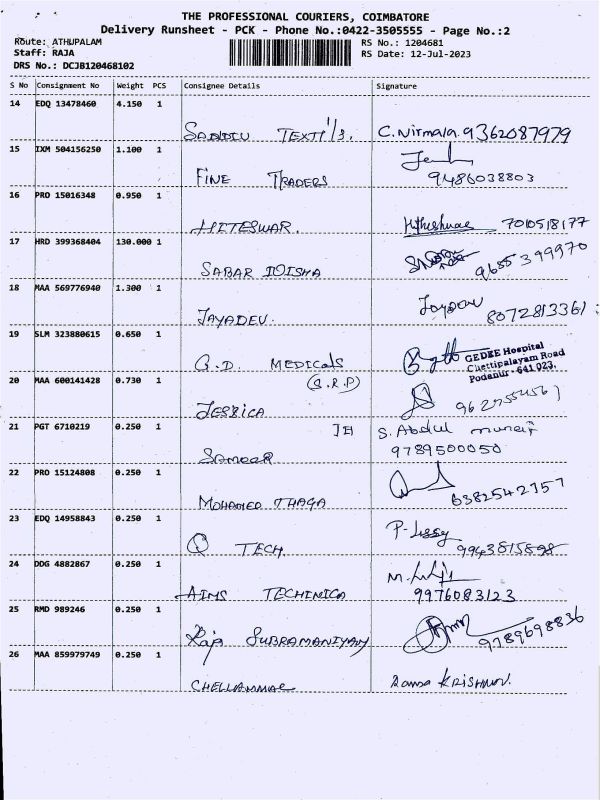 THE PROFESSIONAL COURIERS, COIMBATORE
Delivery Runsheet - PCK - Phone No.:0422-3505555 - Page No.:2
Route: ATHUPALAM
RS No.: 1204681
Staff: RAJA
RS Date: 12-Jul-2023
DRS No.: DCJB120468102
S No Consignment No Weight PCS Consignee Details Signature
14 EDQ 13478460 4.150 1
C. Nirmala. 9362087979
15 IXM 504156250 1.100 1
FINE TRADERS 9486038803
16 PRO 15016348 0.950 1
HITESWAR. 7010518177
17 HRD 399368404 130.000 1
SABAR 9685399970
18 MAA 569776940 1.300 1
JAYADEV. 8072813361
19 SLM 323880615 0.650 1
G.D MEDICALS GEDEE Hospital
Chettipalayam Road
Podanur - 641 023.
20 MAA 600141428 0.730 1 (G.R.P)
JESSICA
21 PGT 6710219 0.250 1 S. Abdul
SAMEER 9789500050
22 PRO 15124808 0.250 1
MOHAMED THAGA 6382542757
23 EDQ 14958843 0.250 1
Q TECH 9943815898
24 DDG 4882867 0.250 1
AIMS TECHINICA 9976083123
25 RMD 989246 0.250 1
Raja SUBRAMANIYAN 9789698836
26 MAA 859979749 0.250 1
CHELLAMMAL Rama KRISHNAN.